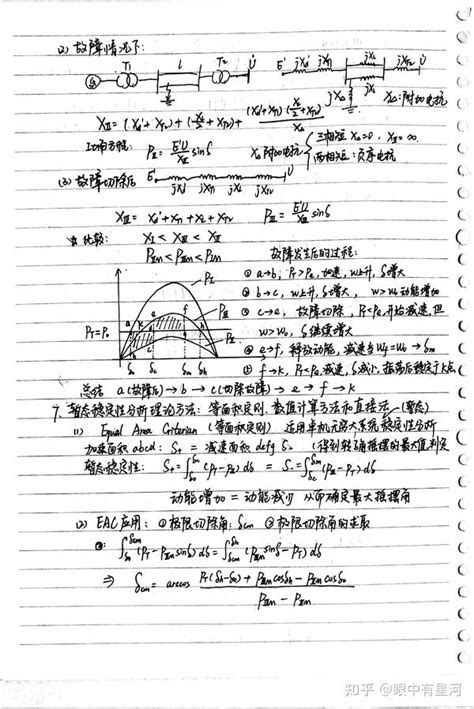 (2) 故障情况下:
G T1 l T2 U̇ Ė' jXd' jXT1 jXL jXL jXT2 U̇
jXΔ XΔ: 附加电抗
XⅡ = (Xd' + XT1) + (XL/2 + XT2) + (Xd'+XT1)(XL/2+XT2)/XΔ
功角方程: PⅡ = E'U/XⅡ sinδ XΔ附加电抗 { 三相短: XΔ=0, XⅡ=∞.
两相短: 负序电抗
(3) 故障切除后 Ė' jXd' jXT1 jXL jXT2 U̇
XⅢ = Xd' + XT1 + XL + XT2 PⅢ = E'U/XⅢ sinδ
比较: XⅠ < XⅢ < XⅡ
PⅡm < PⅢm < PⅠm
故障发生后的过程:
① a→b, PT>Pe, 加速, w上升, δ增大
② b→c, w上升, δ增大, w>w0 动能增加
③ c→e, 故障切除, PT<Pe 开始减速, 但
w>w0, δ继续增大
④ e→f, 释放动能, 减速当 wf=w0→δm
⑤ f→k, PT<Pe, 减速, δ减小, 振荡后稳定于k点
P PⅠ PⅢ PⅡ
PT=P0 a k e f h b c
δ0 δc δm δh δ
总结 a(故障后)→b→c(切除故障)→e→f→k
7. 暂态稳定性分析理论方法: 等面积定则, 数值计算方法和直接法 (暂态)
(1) Equal Area Criterian (等面积定则) 适用单机无穷大系统稳定性分析
加速面积abcd: S+ = 减速面积 defg S- (得到转角摇摆的最大值判定
暂态稳定性: S+ = ∫δ0^δc (PT-PⅡ)dδ = S- = ∫δc^δm (PⅢ-PT)dδ
动能增加 = 动能减少 从而确定最大摇摆角
(2) EAC应用: ①极限切除角: δcm ②极限切除角的求取
②: ∫δ0^δcm (PT-PⅡm sinδ)dδ = ∫δcm^δh (PⅢm sinδ-PT)dδ
⇒ δcm = arccos PT(δh-δ0)+PⅢm cosδh-PⅡm cosδ0 / PⅢm-PⅡm
知乎 @眼中有星河